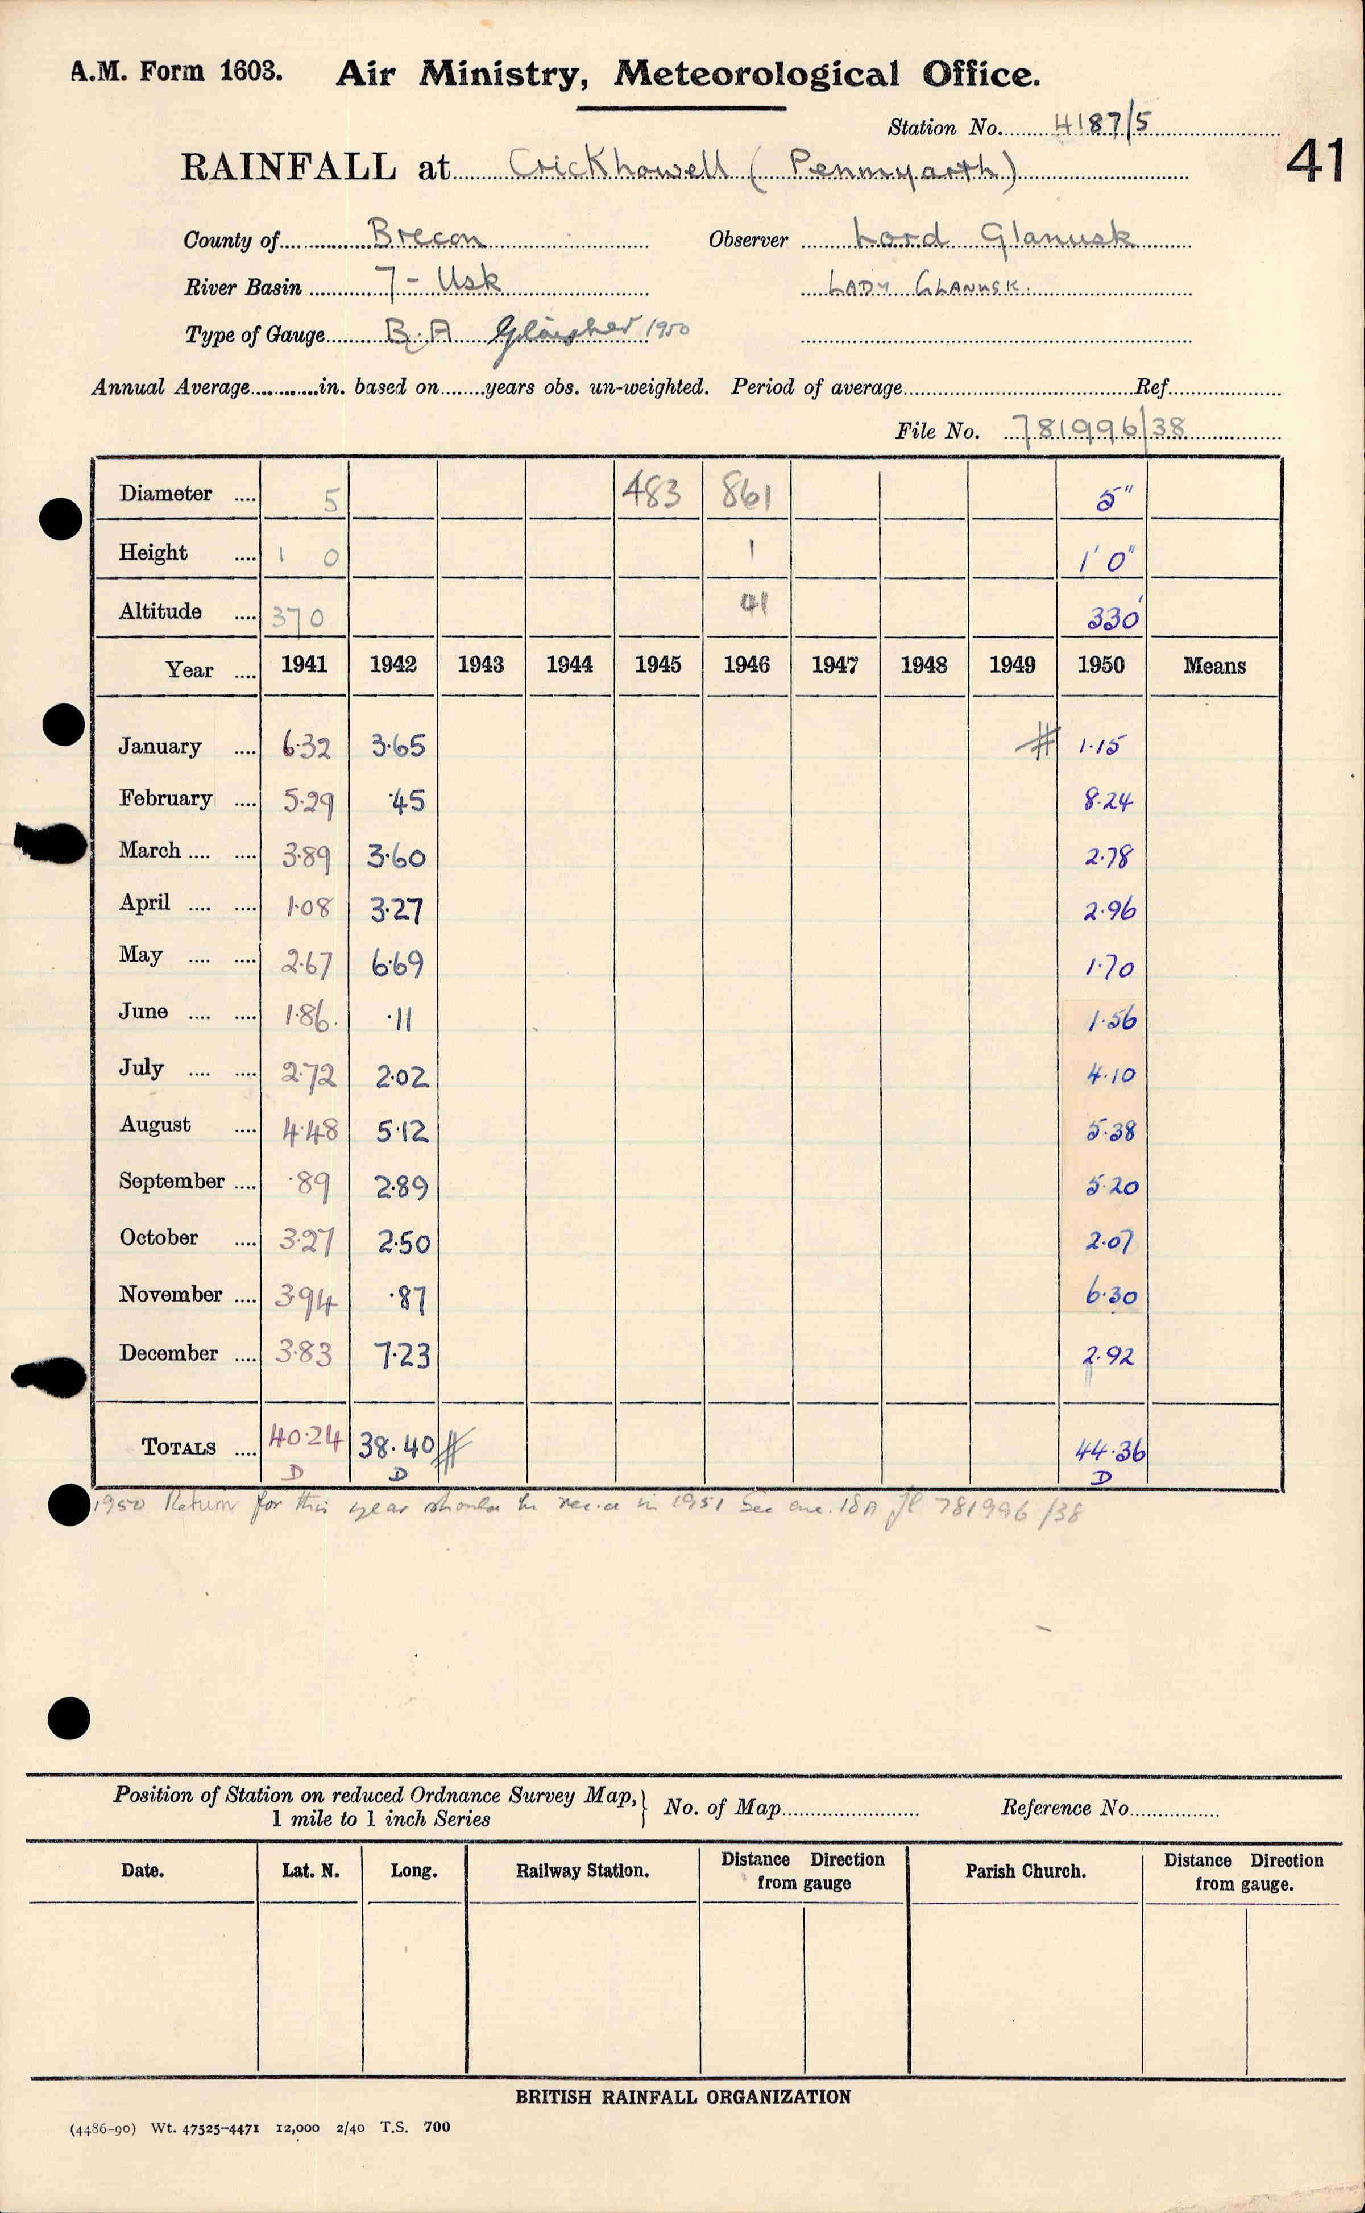 A.M. Form 1603. Air Ministry, Meteorological Office.
Station No. 4187/5
41
RAINFALL at Crickhowell (Penmyarth)
County of Brecon Observer Lord Glanusk
River Basin 7 - Usk LADY GLANUSK.
Type of Gauge B.A Glaisher 1950
Annual Average............in. based on........years obs. un-weighted. Period of average........Ref........
File No. 781996/38
Diameter .... 5 483 861 5"
Height .... 1 0 1 1' 0"
Altitude .... 370 41 330'
Year .... 1941 1942 1943 1944 1945 1946 1947 1948 1949 1950 Means
January .... 6.32 3.65 # 1.15
February .... 5.29 .45 8.24
March .... .... 3.89 3.60 2.78
April .... .... 1.08 3.27 2.96
May .... .... 2.67 6.69 1.70
June .... .... 1.86. .11 1.56
July .... .... 2.72 2.02 4.10
August .... 4.48 5.12 5.38
September .... .89 2.89 5.20
October .... 3.27 2.50 2.07
November .... 3.94 .87 6.30
December .... 3.83 7.23 2.92
TOTALS .... 40.24 38.40 # 44.36
D D D
1950 Return for this year should be in 1951 See 18A 781996/38
Position of Station on reduced Ordnance Survey Map, } No. of Map........ Reference No........
1 mile to 1 inch Series
Date. Lat. N. Long. Railway Station. Distance Direction from gauge Parish Church. Distance Direction from gauge.
BRITISH RAINFALL ORGANIZATION
(4486-90) Wt. 47525-4471 12,000 2/40 T.S. 700